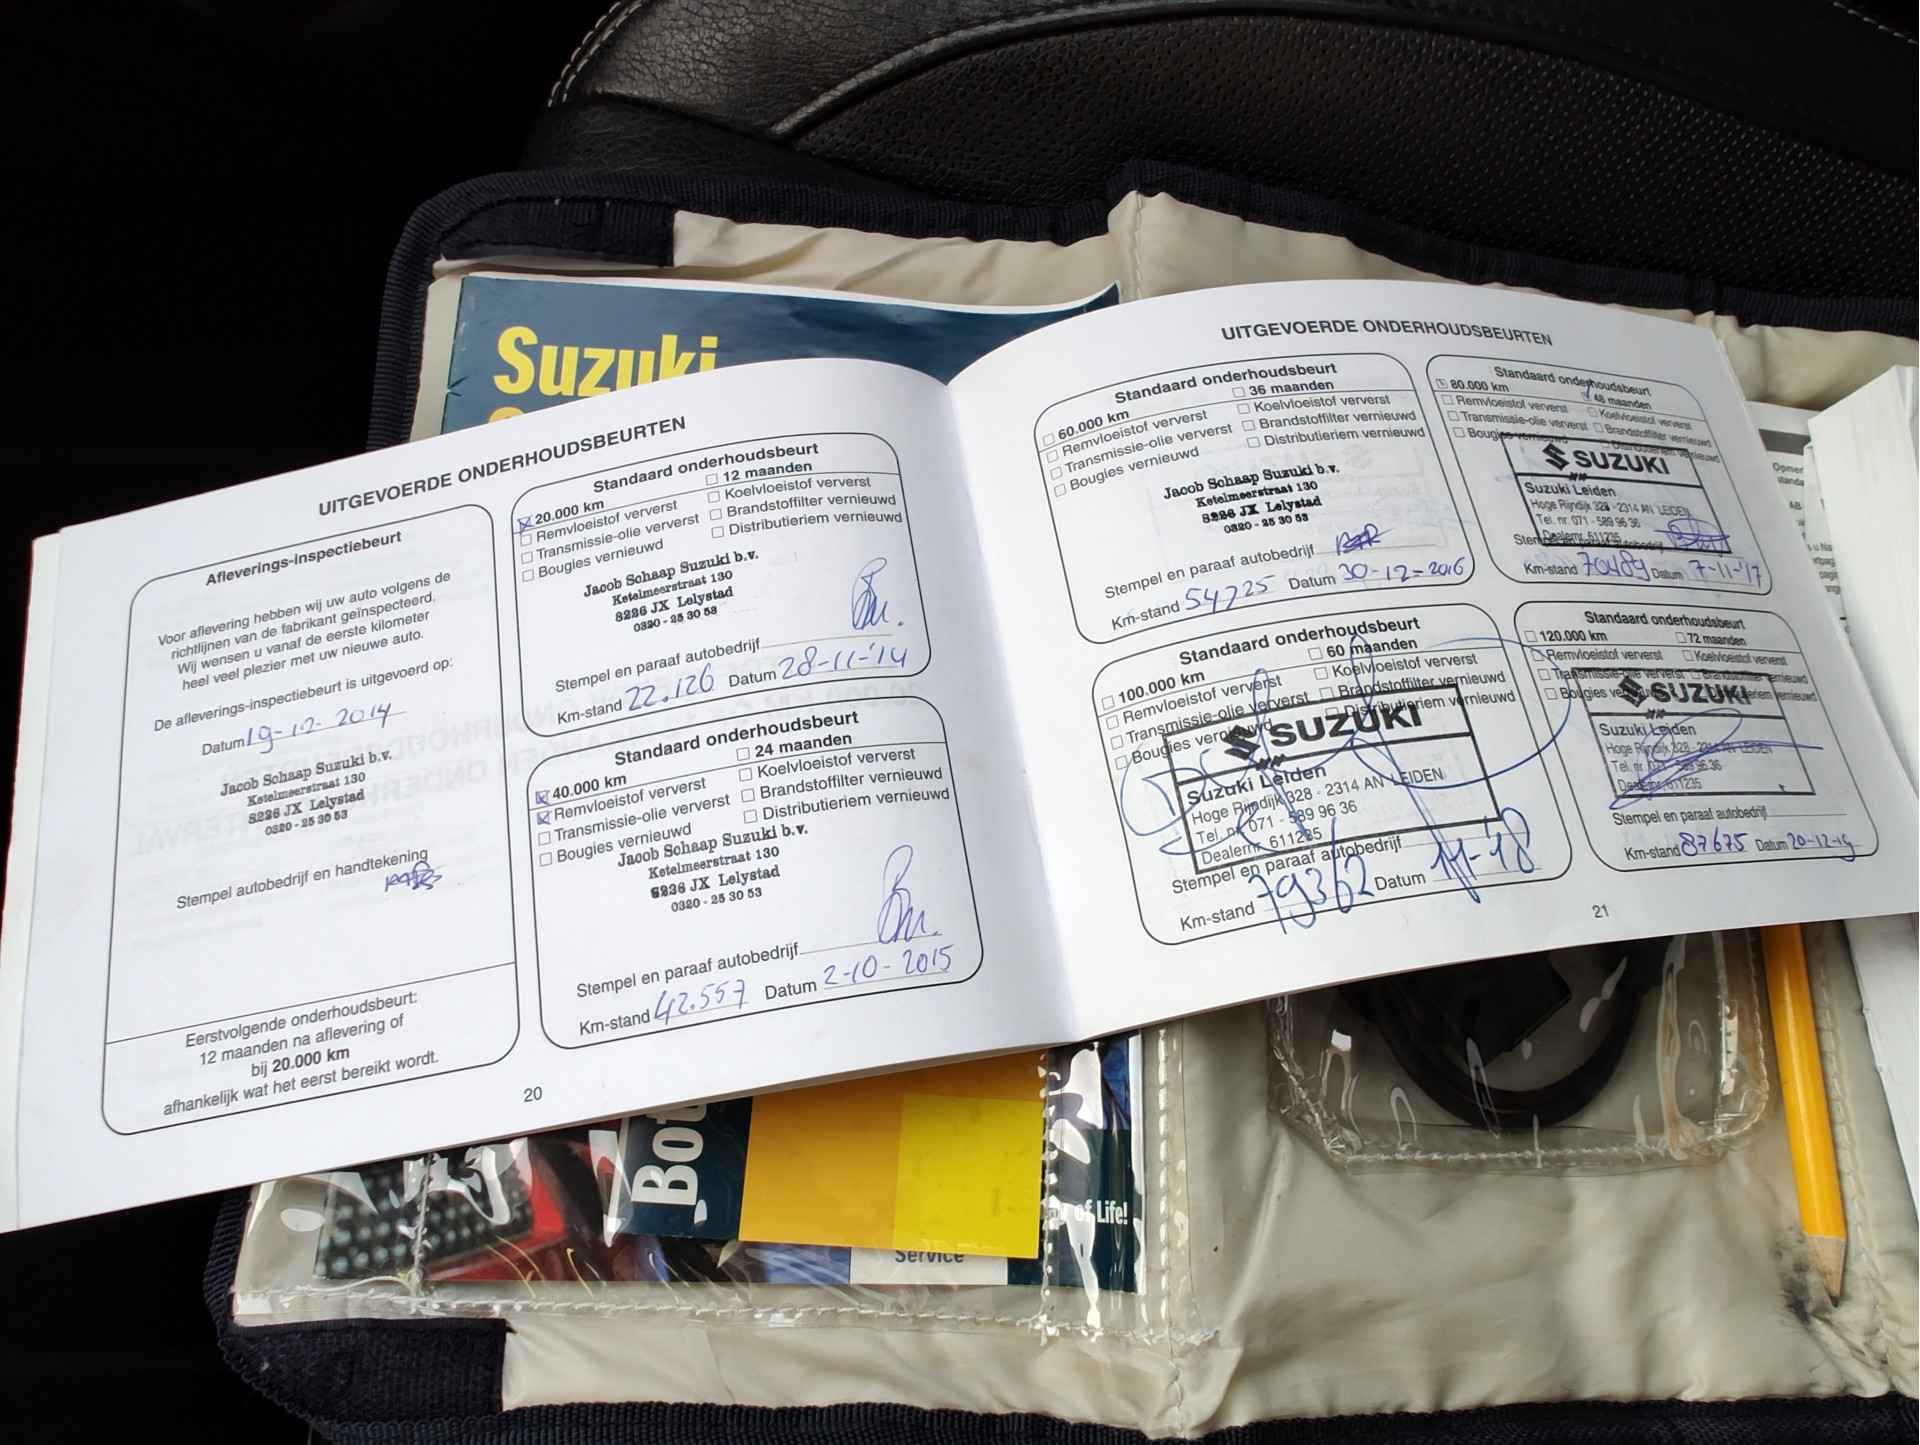 Suzuki
UITGEVOERDE ONDERHOUDSBEURTEN
Afleverings-inspectiebeurt
Voor aflevering hebben wij uw auto volgens de
richtlijnen van de fabrikant geïnspecteerd.
Wij wensen u vanaf de eerste kilometer
heel veel plezier met uw nieuwe auto.
De afleverings-inspectiebeurt is uitgevoerd op:
Datum 19-12-2014
Jacob Schaap Suzuki b.v.
Ketelmeerstraat 130
8226 JX Lelystad
0320 - 25 30 53
Stempel autobedrijf en handtekening
Eerstvolgende onderhoudsbeurt:
12 maanden na aflevering of
bij 20.000 km
afhankelijk wat het eerst bereikt wordt.
Standaard onderhoudsbeurt
20.000 km 12 maanden
Remvloeistof ververst Koelvloeistof ververst
Transmissie-olie ververst Brandstoffilter vernieuwd
Bougies vernieuwd Distributieriem vernieuwd
Jacob Schaap Suzuki b.v.
Ketelmeerstraat 130
8226 JX Lelystad
0320 - 25 30 53
Stempel en paraaf autobedrijf
Km-stand 22.126 Datum 28-11-'14
Standaard onderhoudsbeurt
40.000 km 24 maanden
Remvloeistof ververst Koelvloeistof ververst
Transmissie-olie ververst Brandstoffilter vernieuwd
Bougies vernieuwd Distributieriem vernieuwd
Jacob Schaap Suzuki b.v.
Ketelmeerstraat 130
8226 JX Lelystad
0320 - 25 30 53
Stempel en paraaf autobedrijf
Km-stand 42.557 Datum 2-10-2015
20
UITGEVOERDE ONDERHOUDSBEURTEN
Standaard onderhoudsbeurt
60.000 km 36 maanden
Remvloeistof ververst Koelvloeistof ververst
Transmissie-olie ververst Brandstoffilter vernieuwd
Bougies vernieuwd Distributieriem vernieuwd
Jacob Schaap Suzuki b.v.
Ketelmeerstraat 130
8226 JX Lelystad
0320 - 25 30 53
Stempel en paraaf autobedrijf
Km-stand 54725 Datum 30-12-2016
Standaard onderhoudsbeurt
80.000 km 48 maanden
Remvloeistof ververst Koelvloeistof ververst
Transmissie-olie ververst Brandstoffilter vernieuwd
Bougies vernieuwd Distributieriem vernieuwd
SUZUKI
Suzuki Leiden
Hoge Rijndijk 328 - 2314 AN LEIDEN
Tel. nr. 071 - 589 96 36
Dealernr. 611235
Stempel en paraaf autobedrijf
Km-stand 70489 Datum 7-11-'17
Standaard onderhoudsbeurt
100.000 km 60 maanden
Remvloeistof ververst Koelvloeistof ververst
Transmissie-olie ververst Brandstoffilter vernieuwd
Bougies vernieuwd Distributieriem vernieuwd
SUZUKI
Suzuki Leiden
Hoge Rijndijk 328 - 2314 AN LEIDEN
Tel. nr. 071 - 589 96 36
Dealernr. 611235
Stempel en paraaf autobedrijf
Km-stand 79362 Datum
Standaard onderhoudsbeurt
120.000 km 72 maanden
Remvloeistof ververst Koelvloeistof ververst
Transmissie-olie ververst Brandstoffilter vernieuwd
Bougies vernieuwd Distributieriem vernieuwd
SUZUKI
Suzuki Leiden
Hoge Rijndijk 328 - 2314 AN LEIDEN
Tel. nr. 071 - 589 96 36
Dealernr. 611235
Stempel en paraaf autobedrijf
Km-stand 87675 Datum 20-12-19
21
of Life!
Service